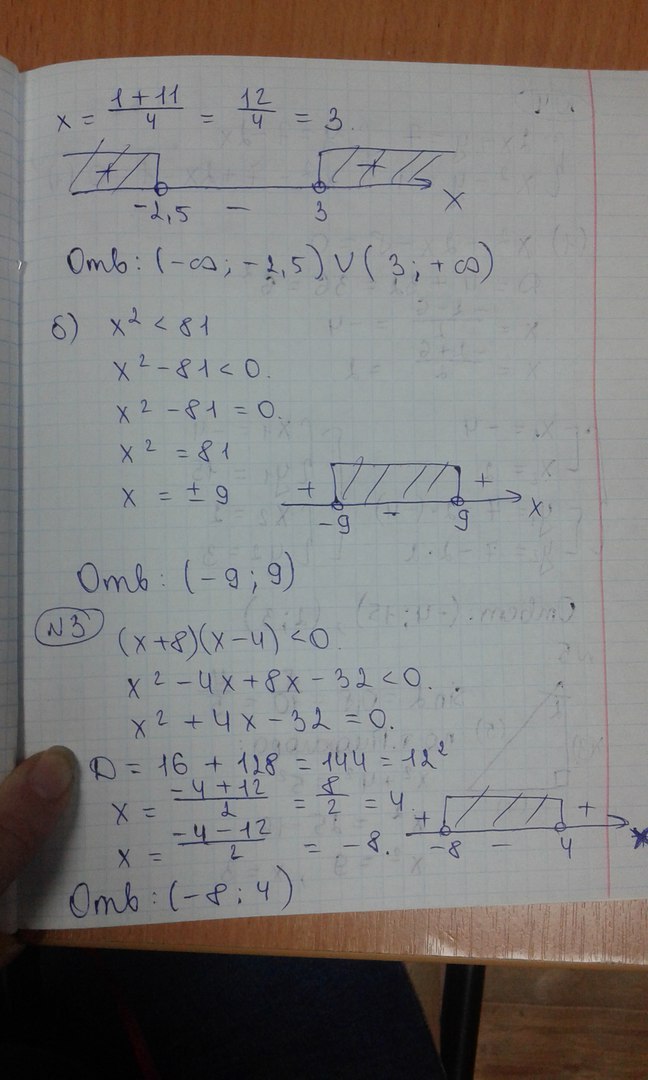 x = (1+11)/4 = 12/4 = 3.
+ + 
-2,5 − 3 x
Отв: (-∞; -2,5) ∪ (3; +∞)
б) x² < 81
x² - 81 < 0.
x² - 81 = 0.
x² = 81
x = ± 9
+ − +
-9 9 x
Отв: (-9; 9)
N3
(x+8)(x-4) < 0.
x² - 4x + 8x - 32 < 0.
x² + 4x - 32 = 0.
D = 16 + 128 = 144 = 12²
x = (-4+12)/2 = 8/2 = 4
x = (-4-12)/2 = -8.
+ − +
-8 4 x
Отв: (-8; 4)